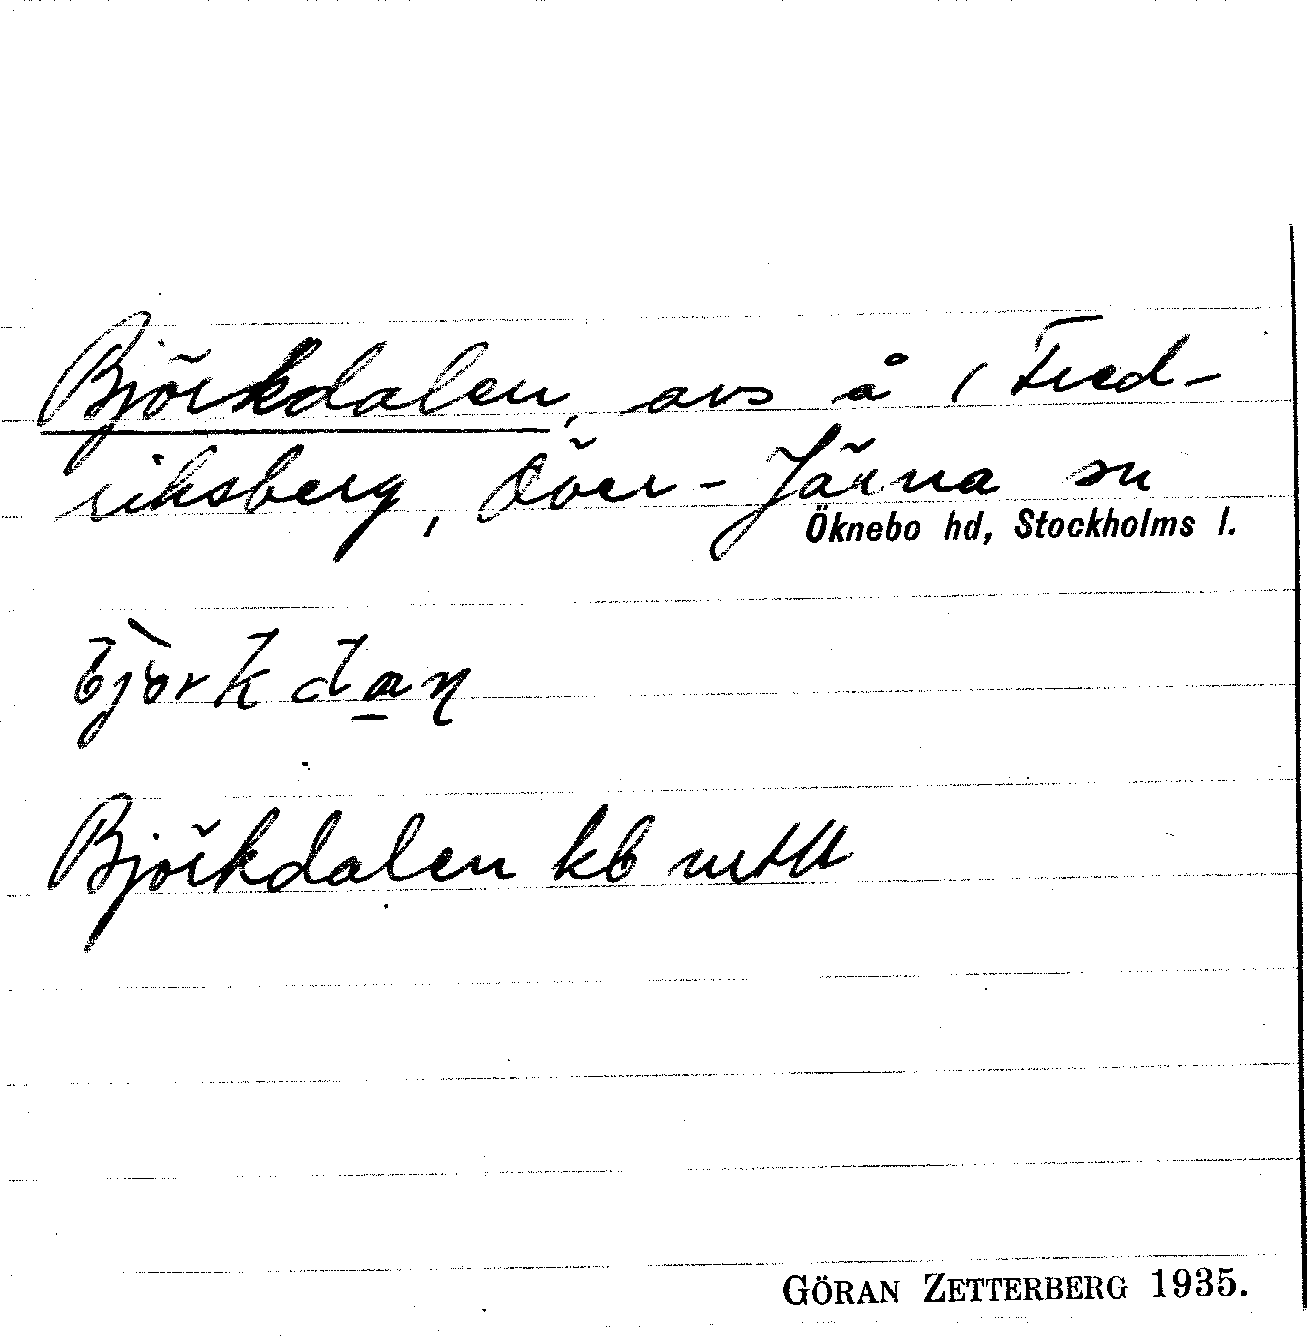 Björkdalen, avs å 1 Fred-
riksberg, Över-Järna sn
Öknebo hd, Stockholms l.
Björkdalen kb
GÖRAN ZETTERBERG 1935.